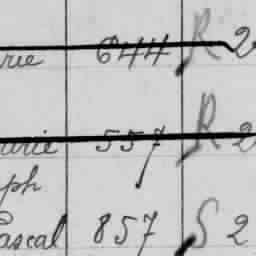 rie 644 R 2
arie 557 R 2
ph
ascal 857 S 2